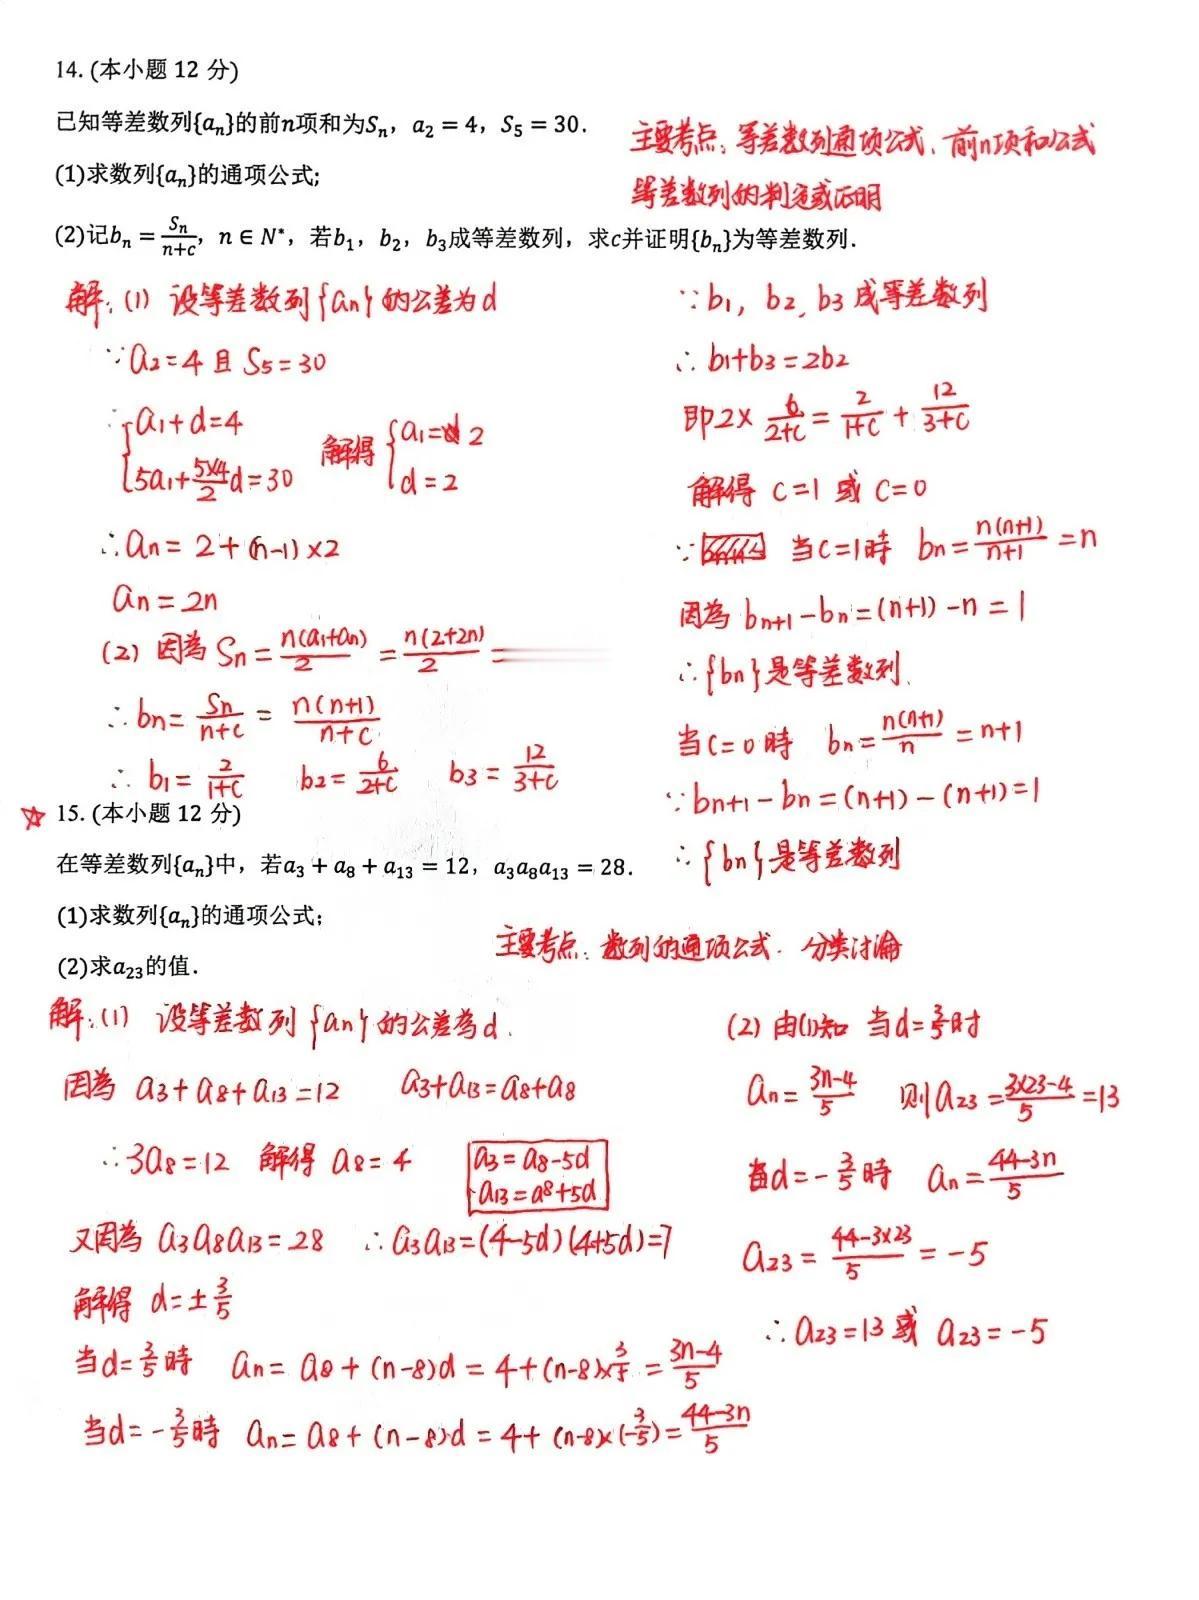 14. (本小题 12 分)
已知等差数列{aₙ}的前n项和为Sₙ，a₂ = 4，S₅ = 30.
(1)求数列{aₙ}的通项公式;
(2)记bₙ = Sₙ/(n+c)，n ∈ N*，若b₁，b₂，b₃成等差数列，求c并证明{bₙ}为等差数列.
主要考点：等差数列通项公式、前n项和公式
等差数列的判定或证明
解：(1) 设等差数列{an}的公差为d
∵a₂=4 且 S₅=30
∴{a₁+d=4
5a₁+(5×4)/2 d=30
解得 {a₁=2
d=2
∴an = 2+(n-1)×2
an = 2n
(2) 因為 Sn = n(a₁+an)/2 = n(2+2n)/2 =
∴bn= Sn/(n+c) = n(n+1)/(n+c)
∴ b₁= 2/(1+c) b₂= 6/(2+c) b₃= 12/(3+c)
∵b₁, b₂, b₃ 成等差数列
∴ b₁+b₃=2b₂
即2× 6/(2+c) = 2/(1+c) + 12/(3+c)
解得 c=1 或 c=0
∵ 当c=1時 bn= n(n+1)/(n+1) =n
因為 bn+1-bn=(n+1)-n=1
∴{bn}是等差数列.
当c=0時 bn= n(n+1)/n =n+1
∵bn+1-bn=(n+1)-(n+1)=1
∴{bn}是等差数列
☆ 15. (本小题 12 分)
在等差数列{aₙ}中，若a₃ + a₈ + a₁₃ = 12，a₃a₈a₁₃ = 28.
(1)求数列{aₙ}的通项公式;
(2)求a₂₃的值.
主要考点：数列的通项公式. 分类讨論
解：(1) 设等差数列{an}的公差為d.
因為 a₃+a₈+a₁₃=12 a₃+a₁₃=a₈+a₈
∴3a₈=12 解得 a₈=4
a₃=a₈-5d
a₁₃=a8+5d
又因為 a₃a₈a₁₃=28 ∴a₃a₁₃=(4-5d)(4+5d)=7
解得 d=±3/5
当d=3/5時 an= a₈+(n-8)d=4+(n-8)×3/5 = (3n-4)/5
当d=-3/5時 an=a₈+(n-8)d=4+(n-8)×(-3/5)=(44-3n)/5
(2) 由(1)知 当d=3/5时
an= (3n-4)/5 则a₂₃=(3×23-4)/5=13
当d=-3/5時 an=(44-3n)/5
a₂₃= (44-3×23)/5 =-5
∴a₂₃=13或 a₂₃=-5